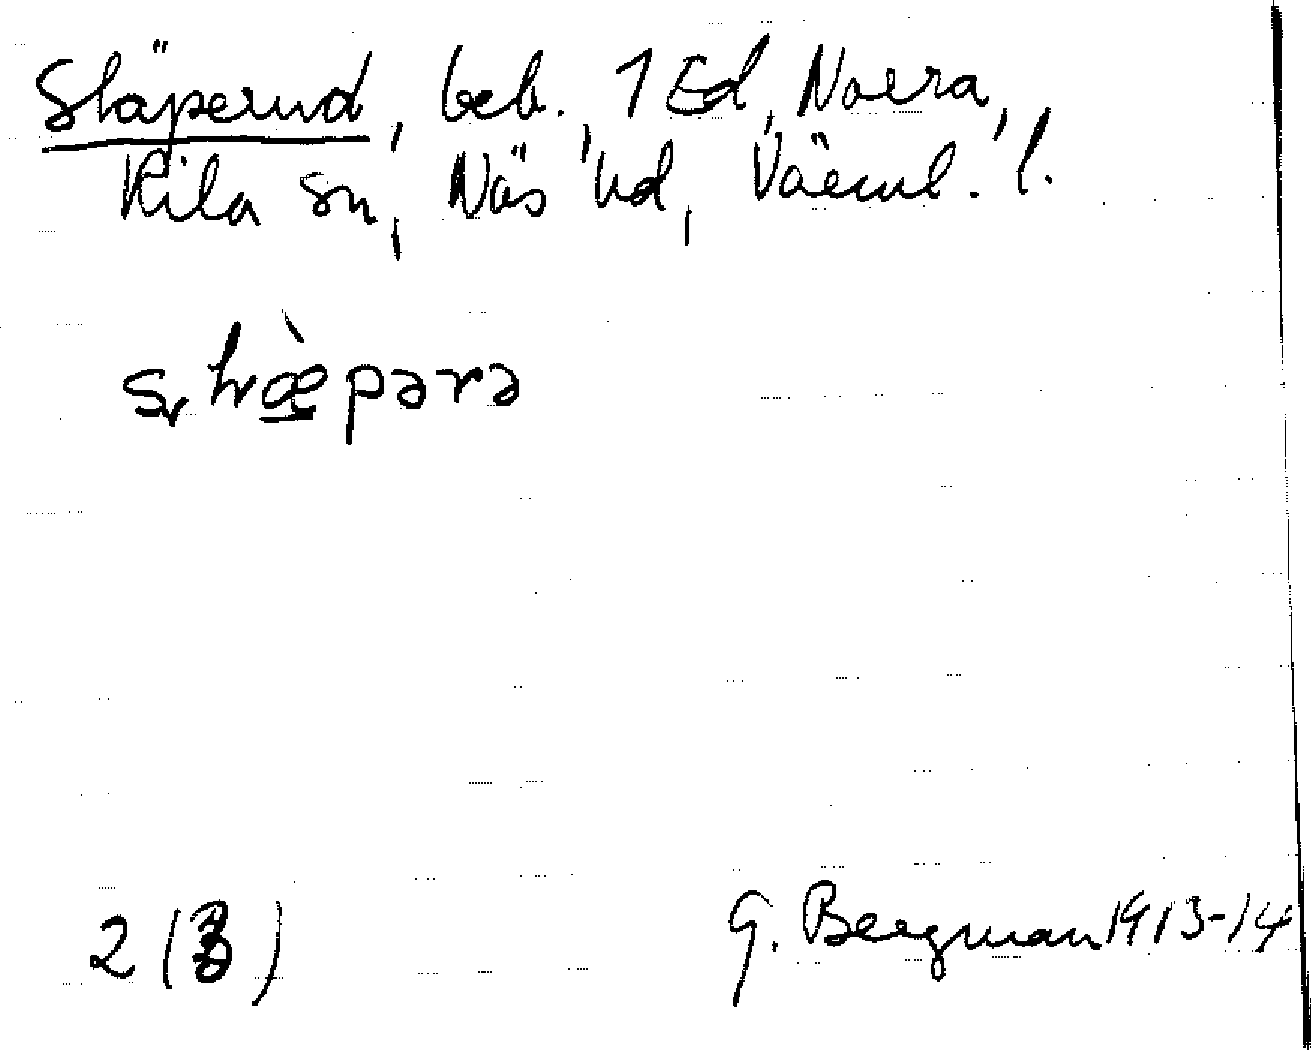 Släperud, beb. 1 Ed, Norra,
Kila sn, Näs hd, Värml. l.
2 (3)
G. Bergman 1913-14